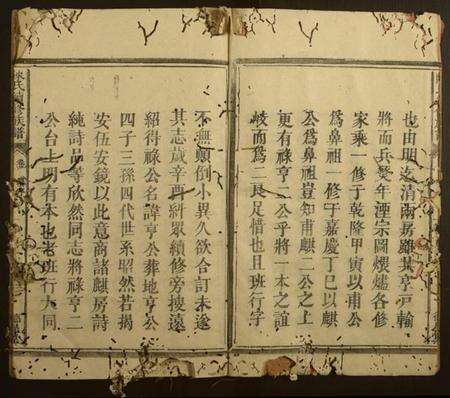 也由明迄清兩房雖某亨戶輸
將而兵燹年湮宗圖煨爐各修
家乘一修于乾隆甲寅以甫公
爲鼻祖一修于嘉慶丁巳以麒
公爲鼻祖豈知甫麒二公之上
更有祿亨二公乎將一本之誼
岐而爲二良足惜也且班行字
不無顛倒小異久欲合訂未遂
其志歲辛酉糾眾續修旁搜遠
紹得祿公名諱亨公葬地亨公
四子三孫四代世系昭然若揭
安伍安鏡以此意商諸麒房詩
純詩品等欣然同志將祿亨二
公台上明有本也老班行大同
氏
族譜
卷